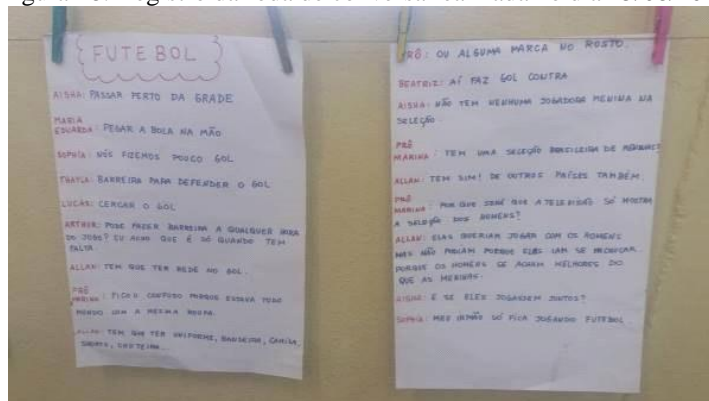 FUTEBOL
AISHA: PASSAR PERTO DA GRADE
MARIA
EDUARDA: PEGAR A BOLA NA MÃO
SOPHIA: NÓS FIZEMOS POUCO GOL
THAYLA: BARREIRA PARA DEFENDER O GOL
LUCAS: CERCAR O GOL
ARTHUR: PODE FAZER BARREIRA A QUALQUER HORA
DO JOGO? EU ACHO QUE É SÓ QUANDO TEM
FALTA.
ALLAN: TEM QUE TER REDE NO GOL.
PRÔ
MARINA: FICOU CONFUSO PORQUE ESTAVA TODO
MUNDO COM A MESMA ROUPA.
ALLAN: TEM QUE TER UNIFORME, BANDEIRA, CAMISA,
SHORTS, CHUTEIRA.
PRÔ: OU ALGUMA MARCA NO ROSTO.
BEATRIZ: AÍ FAZ GOL CONTRA
AISHA: NÃO TEM NENHUMA JOGADORA MENINA NA
SELEÇÃO.
PRÔ
MARINA: TEM UMA SELEÇÃO BRASILEIRA DE MENINAS
ALLAN: TEM SIM! DE OUTROS PAÍSES TAMBÉM.
PRÔ
MARINA: POR QUE SERÁ QUE A TELEVISÃO SÓ MOSTRA
A SELEÇÃO DOS HOMENS?
ALLAN: ELAS QUERIAM JOGAR COM OS HOMENS
MAS NÃO PODIAM PORQUE ELAS IAM SE MACHUCAR.
PORQUE OS HOMENS SE ACHAM MELHORES DO
QUE AS MENINAS.
AISHA: E SE ELES JOGASSEM JUNTOS?
SOPHIA: MEU IRMÃO SÓ FICA JOGANDO FUTEBOL.